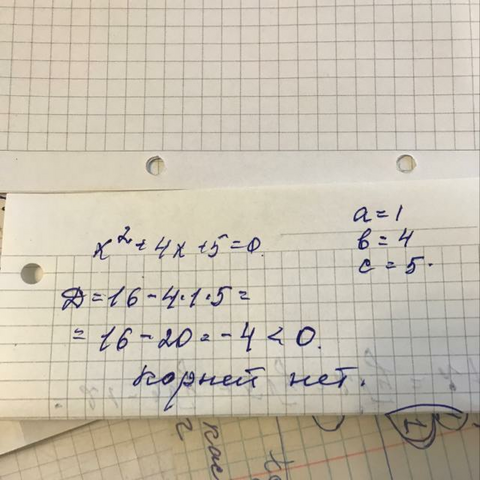 x² + 4x + 5 = 0.
a = 1
в = 4
c = 5.
D = 16 - 4·1·5 =
= 16 - 20 = -4 < 0.
Корней нет.
кас